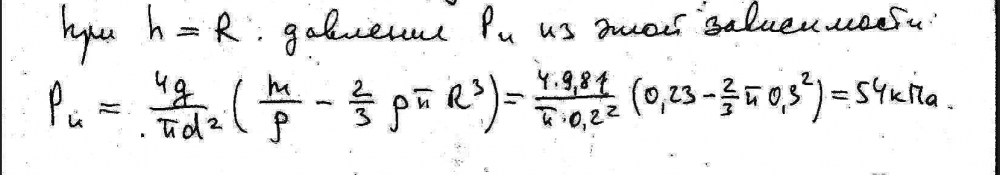 при h = R. давление Pи из этой зависимости
Pи = 4g/πd² (m/ρ - 2/3 ρπR³) = 4·9,81/π·0,2² (0,23 - 2/3 π 0,3²) = 54 кПа.